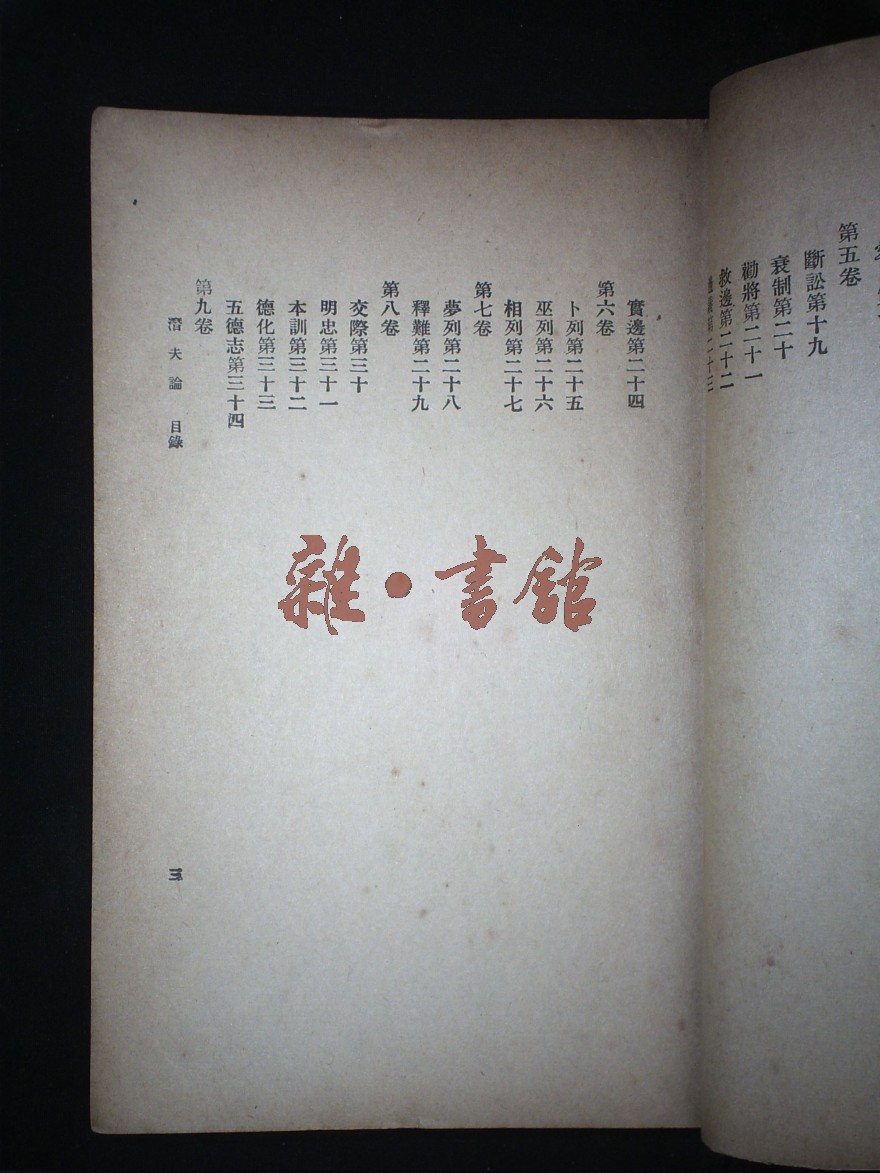 第五卷
斷訟第十九
衰制第二十
勸將第二十一
救邊第二十二
邊議第二十三
實邊第二十四
第六卷
卜列第二十五
巫列第二十六
相列第二十七
第七卷
夢列第二十八
釋難第二十九
第八卷
交際第三十
明忠第三十一
本訓第三十二
德化第三十三
五德志第三十四
第九卷
潛夫論 目錄
三
雜·書館